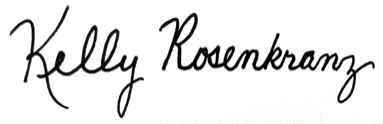 Kelly Rosenkranz